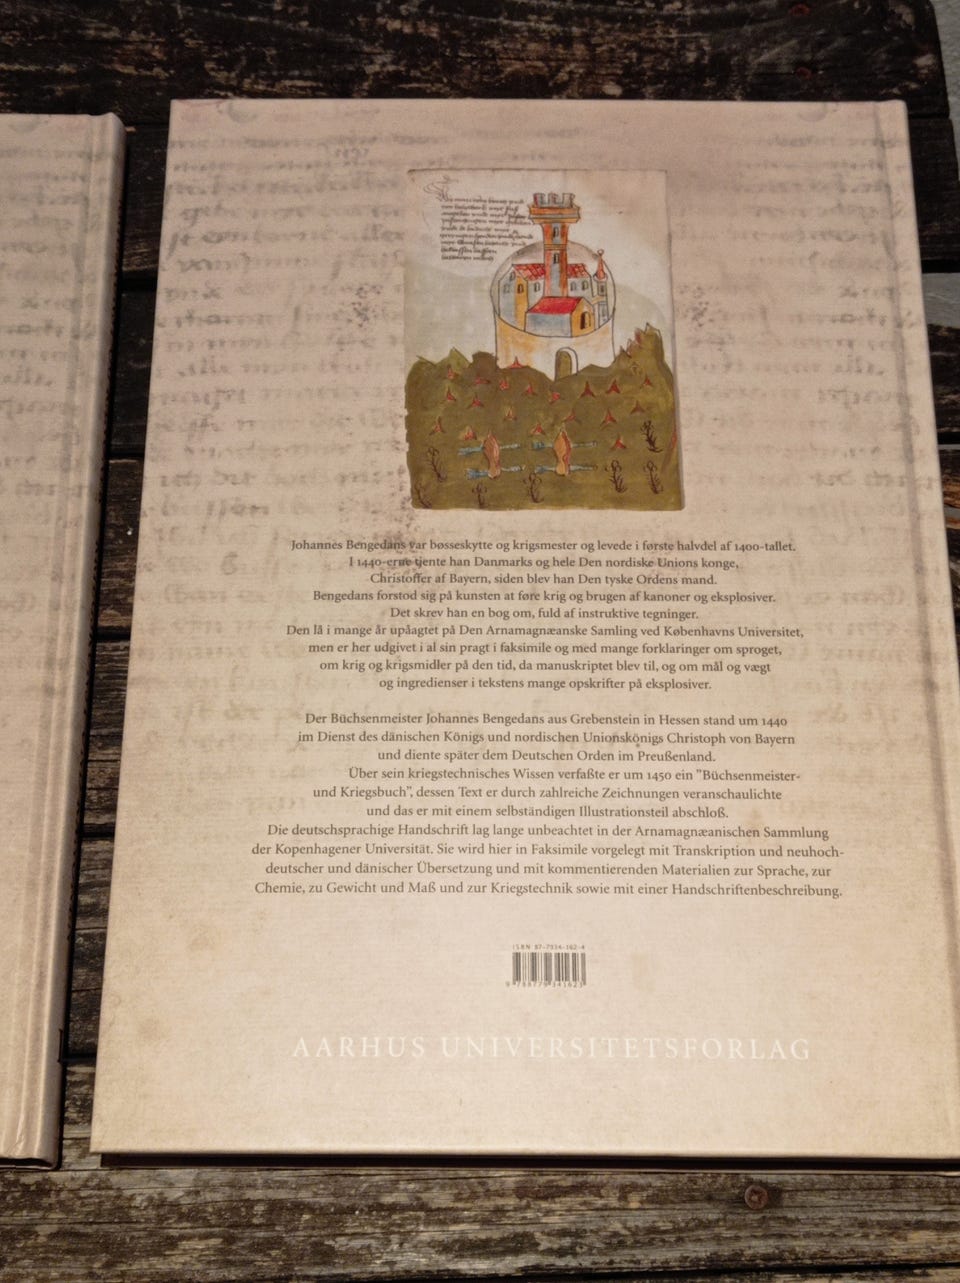 Johannes Bengedans var bøsseskytte og krigsmester og levede i første halvdel af 1400-tallet.
I 1440-erne tjente han Danmarks og hele Den nordiske Unions konge,
Christoffer af Bayern, siden blev han Den tyske Ordens mand.
Bengedans forstod sig på kunsten at føre krig og brugen af kanoner og eksplosiver.
Det skrev han en bog om, fuld af instruktive tegninger.
Den lå i mange år upåagtet på Den Arnamagnæanske Samling ved Københavns Universitet,
men er her udgivet i al sin pragt i faksimile og med mange forklaringer om sproget,
om krig og krigsmidler på den tid, da manuskriptet blev til, og om mål og vægt
og ingredienser i tekstens mange opskrifter på eksplosiver.
Der Büchsenmeister Johannes Bengedans aus Grebenstein in Hessen stand um 1440
im Dienst des dänischen Königs und nordischen Unionskönigs Christoph von Bayern
und diente später dem Deutschen Orden im Preußenland.
Über sein kriegstechnisches Wissen verfaßte er um 1450 ein "Büchsenmeister-
und Kriegsbuch", dessen Text er durch zahlreiche Zeichnungen veranschaulichte
und das er mit einem selbständigen Illustrationsteil abschloß.
Die deutschsprachige Handschrift lag lange unbeachtet in der Arnamagnæanischen Sammlung
der Kopenhagener Universität. Sie wird hier in Faksimile vorgelegt mit Transkription und neuhoch-
deutscher und dänischer Übersetzung und mit kommentierenden Materialien zur Sprache, zur
Chemie, zu Gewicht und Maß und zur Kriegstechnik sowie mit einer Handschriftenbeschreibung.
ISBN 87-7934-162-4
9 788779 341623
AARHUS UNIVERSITETSFORLAG